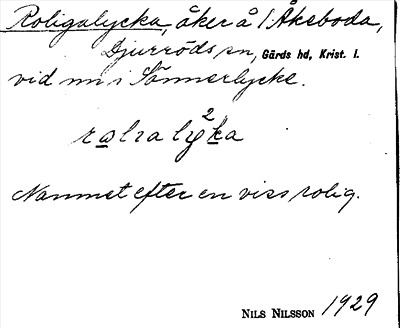 Roligalycka, åker å 1 Åkeboda,
Djurröds sn, Gärds hd, Krist. l.
vid nn i Sönnerlycke.
Namnet efter en viss rolig.
NILS NILSSON 1929